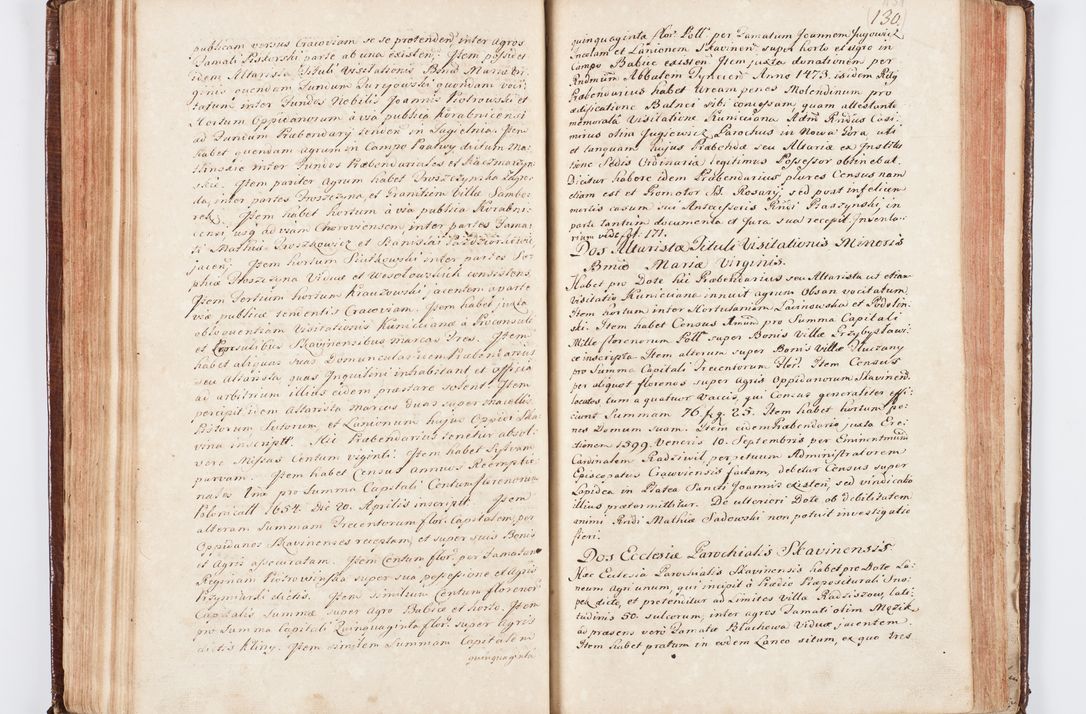 publicam versus Cracoviam se se protenden inter agros
Famati Pistorski parte ab una existen. Item possidet
idem Altarista Tituli Visitationis Bmae Mariae Vir
ginis quendam Fundum Jurijowski quondam voci
tatum inter Fundos Nobilis Joannis Piotrowski et
Hortum Oppidanorum à via publica Korabnicensi
ad Fundum Praebendarij tenden in Jugielnia. Item
habet quendam agrum in Campo dictum
inter Fundos Praebendariales et Kaczmarczyn
skie. Item pariter Agrum habet Proszczynska
da, inter partes Proszczyna, et Granitiem Villae Sambo
rek. Item habet hortum à via publica Korabni
censi usq ad viam Choroviensem inter partes Fama
ti Mathiae Proszkowicz et Stanislai Pazdziorkowie
jacen. Item hortum Piutkowski inter partes So
phiae Proszczyna Viduae et Wesolowszkich consisten
Item Tertium hortum Krauzowski jacentem à parte
viae publicae tenentis Cracoviam. Item habet juxta
obloquentiam Visitationis Kunicianae à Proconsule
et Consulibus Skavinensibus marcas Tres. Item
habet aliquas suas Domunculas idem Praebendarius
seu Altarista quas Inquilini inhabitant et officia
ad arbitrium illius eidem praestare solent. Item
percipit idem Altarista marcas duas super macellis
Pistorum Sutorum, et Lanionum hujus Oppidi Ska
vina inscriptt. Hic Praebendarius tenetur absol
vere Missas Centum viginti. Item habet Sylvam
parvam. Item habet Census annuos Reemptio
nales Unu pro Summa Capitali Centum florenorum
Polonicall 1654. Die 20. Aprilis inscriptt. Item
alteram Summam Trecentorum flor. Capitalem, per
Oppidanos Skavinenses receptam, et super suis Bonis
et Agris assecuratam. Item Centum flor. per Famatam
Reginam Piotrowinska super sua possessione et Agris
Przymiarki dictis. Item similem Centum florenor
Capitalis Summae super Agro Babice et horto. Item
pro Summa Capitali Quinquaginta flor. super Agris
dictis Kliny. Item similem Summam Capitalem
quinquaginta
130.
quinquaginta flor. Poll per Famatum Joannem Jugowicz
Incolam et Lanionem Skavinen super horto et Agro in
Campo Babice existen Item juxta donationem per
Rndmum Abbatem Tynecen Anno 1473. isidem Rdg
Praebendarius habet Aream penes Molendinum pro
aedificatione Balnei sibi concessam, quam attestante
memorata Visitatione Kuniciana Adm Rndus Casi
mirus olim Jugiewicz Parochus in Nowa Gora, uti
et tanquam hujus Prabendae seu Altariae ex Institu
tione Sedis Ordinaria legitimus Possessor obtinebat.
Dicitur habere idem Praebendarius plures Census nam
etiam est et Promotor SS. Rosarij, sed post infelicem
mortis casum sui Antecessoris Rndi Praszynski in
parte tantum documenta et Jura sua recepit. Inventa-
rium vide, p. 171.
Dos Altaristae Tituli Visitationis Minoris
Bmae Mariae Virginis.
Habet pro Dote hic Praebendarius seu Altarista ut etiam
Visitatio Kuniciana innuit agrum Obsan vocitatum
Item hortum inter Hortulaniam Lacinowska et Podolin
ski. Item habet Census Annuu pro Summa Capitali
Mille florenorum Poll super Bonis Villae Przybyslawi
ce inscripta. Item alterum super Bonis Villae Tluczany
pro Summa Capitali Trecentorum flor. Item Census
per aliquot florenos super agris Oppidanorum Skavinen.
locatos tum a quatuor vaccis, qui Census generaliter effi
ciunt Summam 76. f. g. 25. Item habet hortum pe-
nes Domum suam. Item eidem Prabendario juxta Ere-
ctionem 1599. Veneris 10. Septembris per Eminentmum
Cardinalem Radziwil perpetuum Administratorem
Episcopatus Cracoviensis factam, debetur Census super
Lapidea in Platea Sancti Joannis existen, sed vindicatio
illius praetermittitur. De ulteriori Dote ob debilitatem
animi Rndi Mathiae Sadowski non potuit investigatio
fieri.
Dos Ecclesiae Parochialis Skavinensis
Haec Ecclesia Parochialis Skavinensis habet pro Dote La-
neum agri unum, qui incipit à Praedio Praepositurali Sno-
pca dicto, et protenditur ad Limites Villae Radziszow, lati-
tudinis 50. sulcorum, inter agros Famati olim Mozik
ad praesens vero Famatae Blachowa Viduae jacentem.
Item habet pratum in eodem Laneo situm, ex quo tres